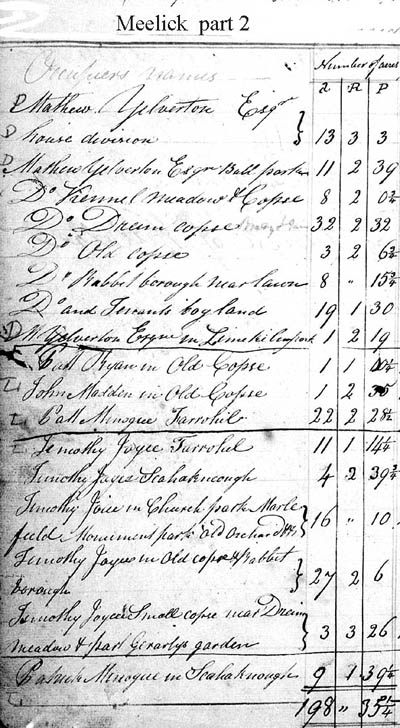 Meelick part 2
Occupiers names Number of acres
a R P
D Mathew Yelverton Esqr
D house division } 13 3 3
D Mathew Yelverton Esqr Ball park 11 2 39
Do Kennel meadow & Copse 8 2 0¾
Do Dream copse 32 2 32
Do Old copse 3 2 6¾
Do Rabbit borough near lawn 8 " 15¾
Do and Tenants bog land 19 1 30
D W. Yelverton Esqr in 1 2 19
Patt Ryan in Old Copse 1 1
John Madden in Old Copse 1 2
Patt Minogue Farrohil 22 2 28½
Timothy Joyce Farrohil 11 1 14¼
Timothy Joyce Seahaknough 4 2 39¾
Timothy Joice in Church park Marle
field, Monument park Old Orchard &c } 16 " 10
Timothy Joyce in Old copse & Rabbit
borough } 27 2 6
Timothy Joyce Small copse near Dream
meadow & part Gerartys garden } 3 3 26
Patrick Minogue in Seahaknough 9 1 39½
198 " 35¼